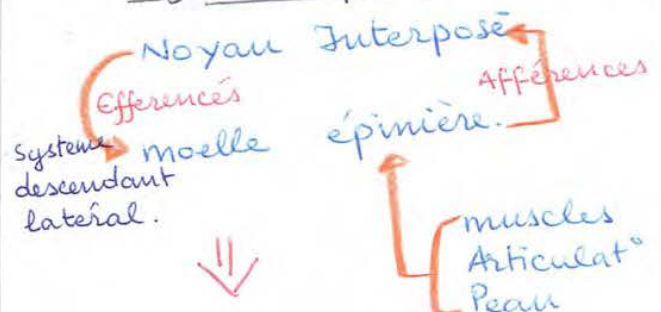 Noyau Interposé
Efferencés
Afférences
Système
descendant
latéral.
moelle épinière.
muscles
Articulat°
Peau